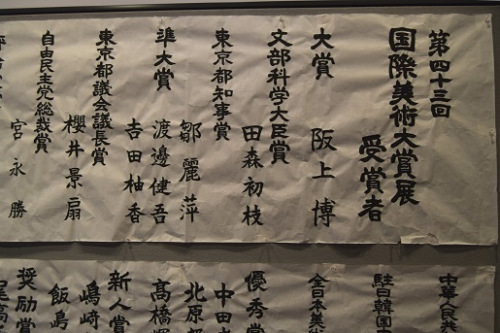 第四十三回
国際美術大賞展
受賞者
大賞 阪上博
文部科学大臣賞
田森初枝
東京都知事賞
鄒麗萍
準大賞
渡邊健吾
吉田柚香
東京都議会議長賞
櫻井景扇
自由民主党総裁賞
宮永勝
中華人民共
駐日韓国
全日本美
優秀賞
中田
北原
髙橋
新人賞
嶋崎
飯島
奨励賞